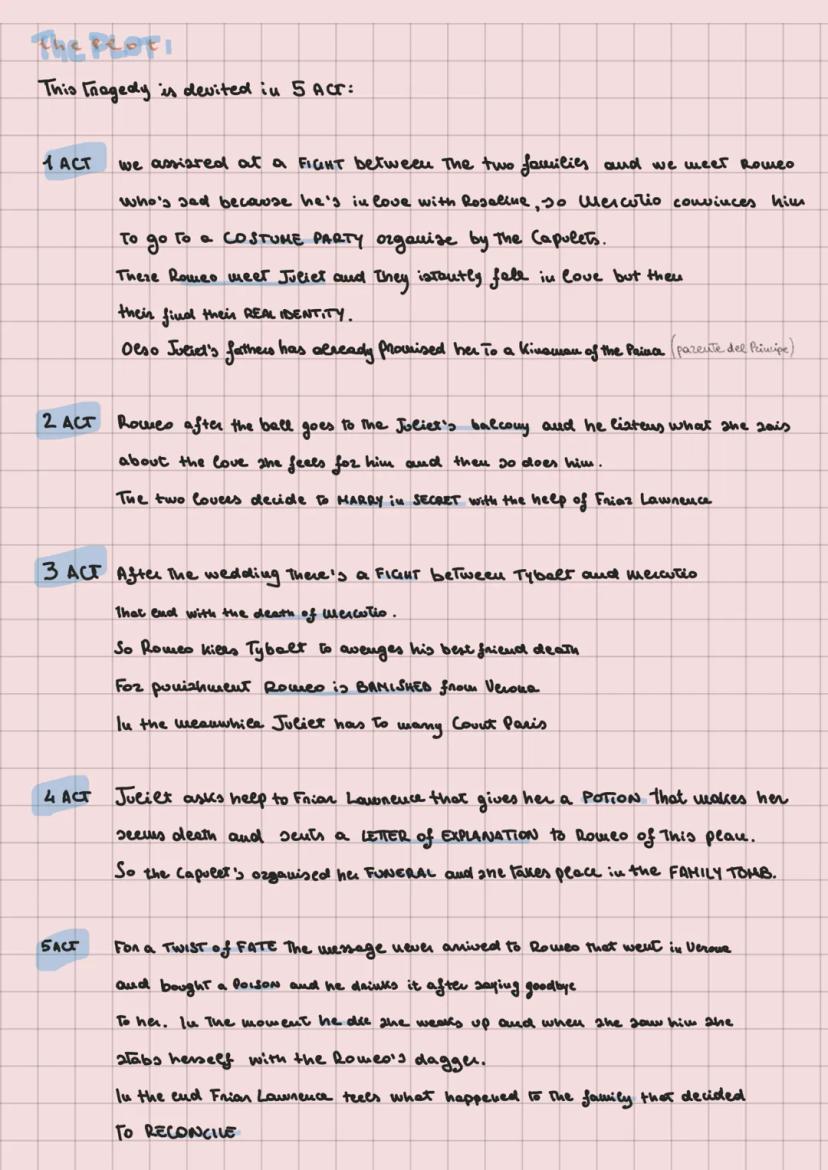 The PLOT!
This Tragedy is devited in 5 ACT:
1 ACT we assisted at a FIGHT between The two families and we meet Romeo
who's sad because he's in love with Rosaline, so Mercutio convinces him
To go To a COSTUME PARTY organise by the Capulets.
There Romeo meet Juliet and They istantly fall in love but then
their find their REAL IDENTITY.
Olso Juliet's fathers has already promised her To a Kinsman of the Prince (parente del Principe)
2 ACT Romeo after the ball goes to the Juliet's balcony and he listens what she sais
about the love she feels for him and then so does him.
The two lovers decide to MARRY in SECRET with the help of Friar Lawrence
3 ACT After The wedding There's a FIGHT between Tybalt and Mercutio
That end with the death of Mercutio.
So Romeo kills Tybalt to avenges his best friend death
For punishment Romeo is BANISHED from Verona
In the meanwhile Juliet has To marry Count Paris
4 ACT Juliet asks help to Friar Lawrence that gives her a POTION That makes her
seems death and sents a LETTER of EXPLANATION to Romeo of This plan.
So the Capulet's organised her FUNERAL and she takes place in the FAMILY TOMB.
5 ACT For a TWIST of FATE The message never arrived to Romeo that went in Verona
and bought a POISON and he drinks it after saying goodbye
To her. In The moment he die she weaks up and when she saw him she
stabs herself with the Romeo's dagger.
In the end Friar Lawrence tells what happened to The family that decided
To RECONCILE